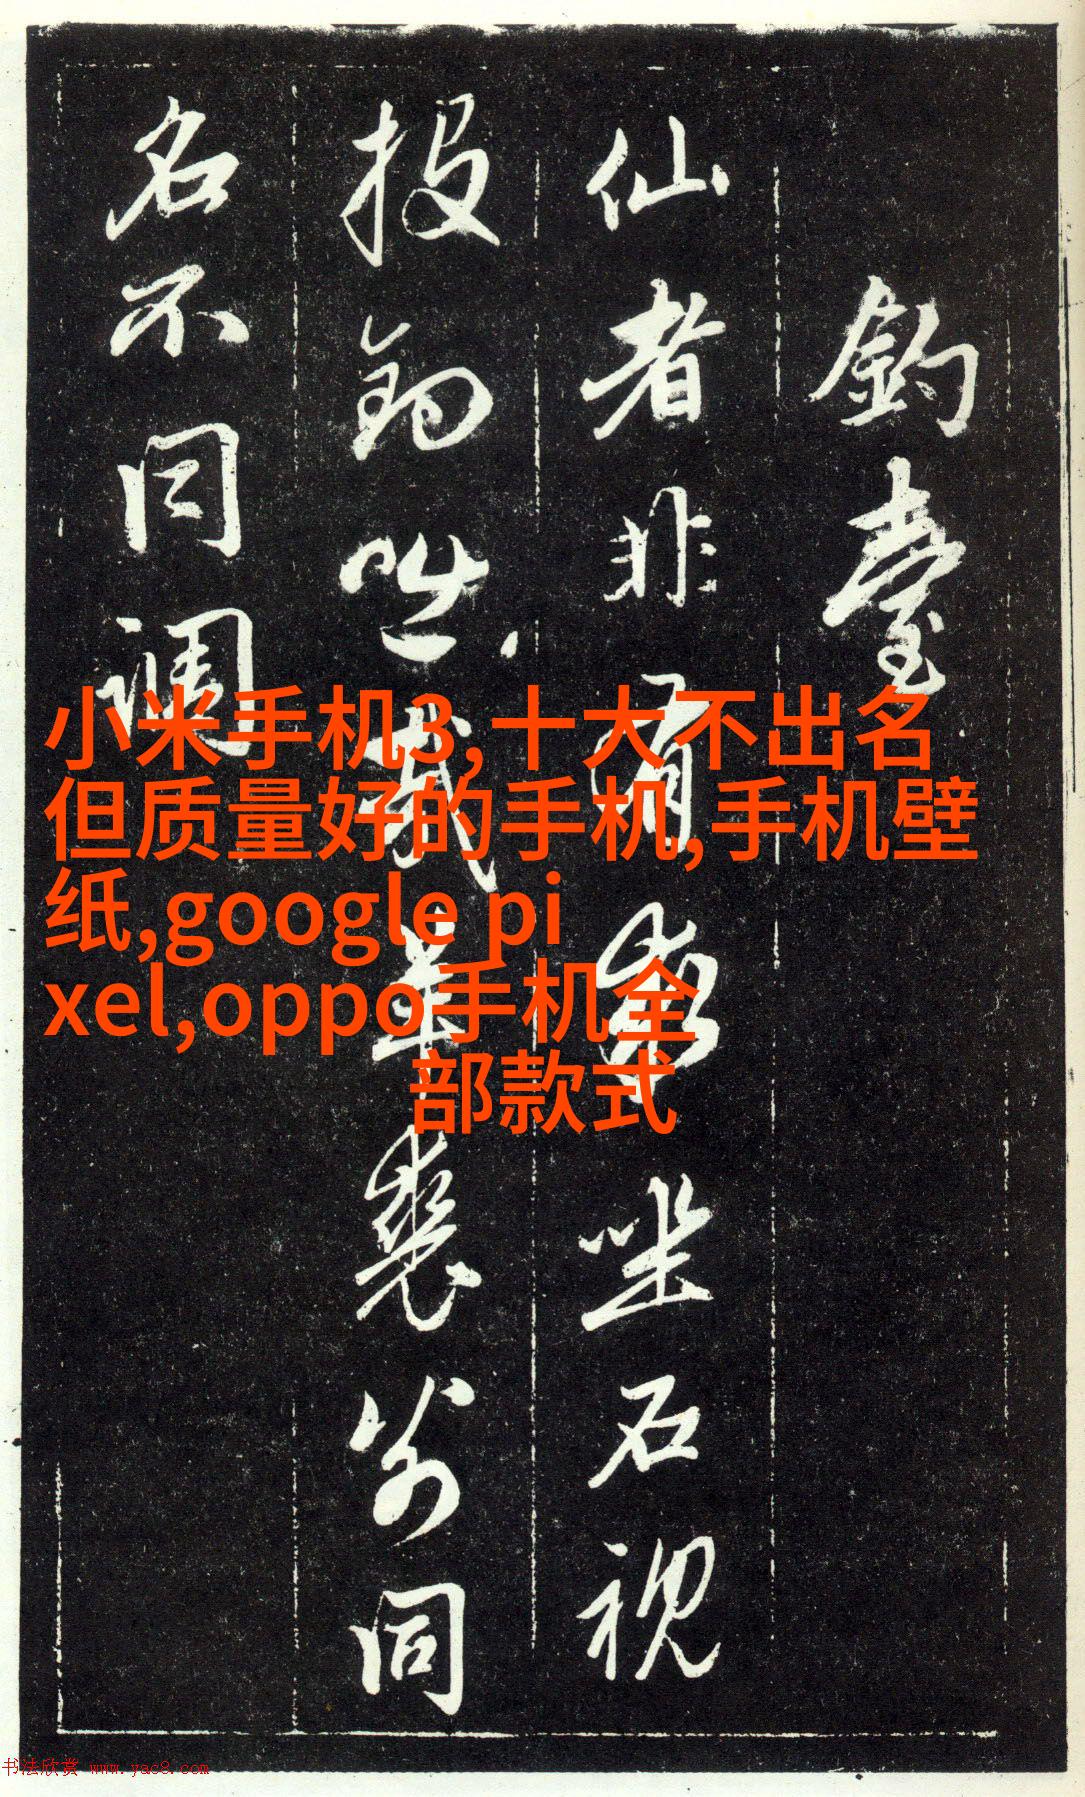 釣臺
仙者非有求坐石視
投釣咄哉羊裘翁同
名不同調
小米手机3,十大不出名
但质量好的手机,手机壁
纸,google pi
xel,oppo手机全
部款式
书法欣赏 www.yac8.com